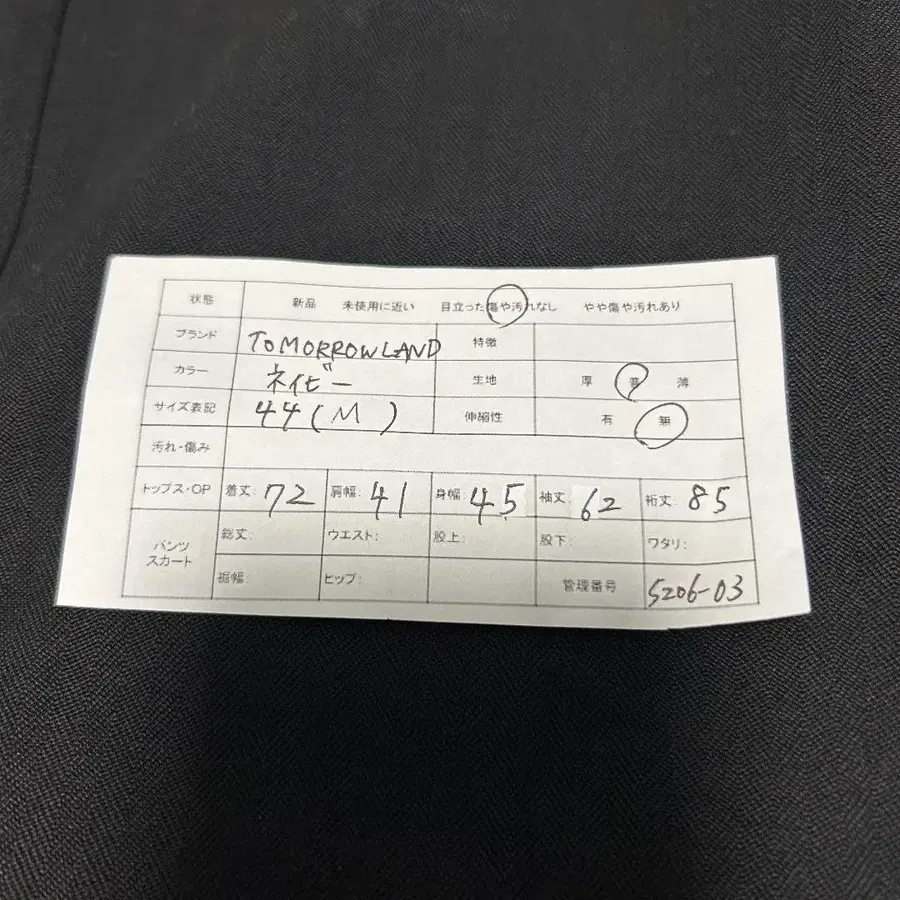 状態 新品 未使用に近い 目立った傷や汚れなし やや傷や汚れあり
ブランド TOMORROWLAND 特徴
カラー ネイビー 生地 厚 普 薄
サイズ表記 44(M) 伸縮性 有 無
汚れ・傷み
トップス・OP 着丈: 72 肩幅: 41 身幅: 45 袖丈: 62 裄丈: 85
パンツ スカート 総丈: ウエスト: 股上: 股下: ワタリ:
裾幅: ヒップ: 管理番号 5206-03